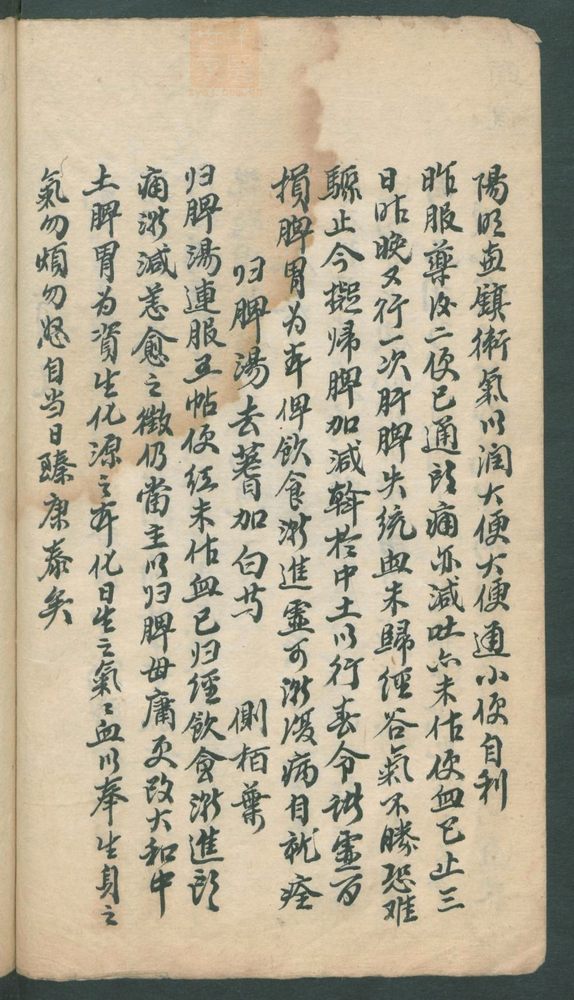 陽明直鎮衝氣以潤大便大便通小便自利
昨服藥後二便已通頭痛亦減吐亦未作便血已止三
日昨晚又行一次肝脾失統血未歸經谷氣不勝恐难
驟止今擬歸脾加減斡於中土以行春令諸虛百
損脾胃为本俾飲食漸進虛可漸復病自就痊
归脾湯去蓍加白芍 側栢葉
归脾湯連服五帖便红未作血已归經飲食漸進頭
痛漸減恙愈之徵仍當主以归脾毋庸更改大和中
土脾胃为資生化源之本化日生之氣〻血以奉生身之
氣勿煩勿怒自当日臻康泰矣